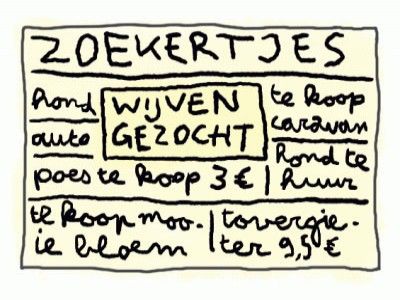 ZOEKERTJES
hond
auto
WIJVEN
GEZOCHT
te koop
caravan
poes te koop 3 €
hond te
huur
te koop moo-
ie bloem
tovergie-
ter 9,5 €